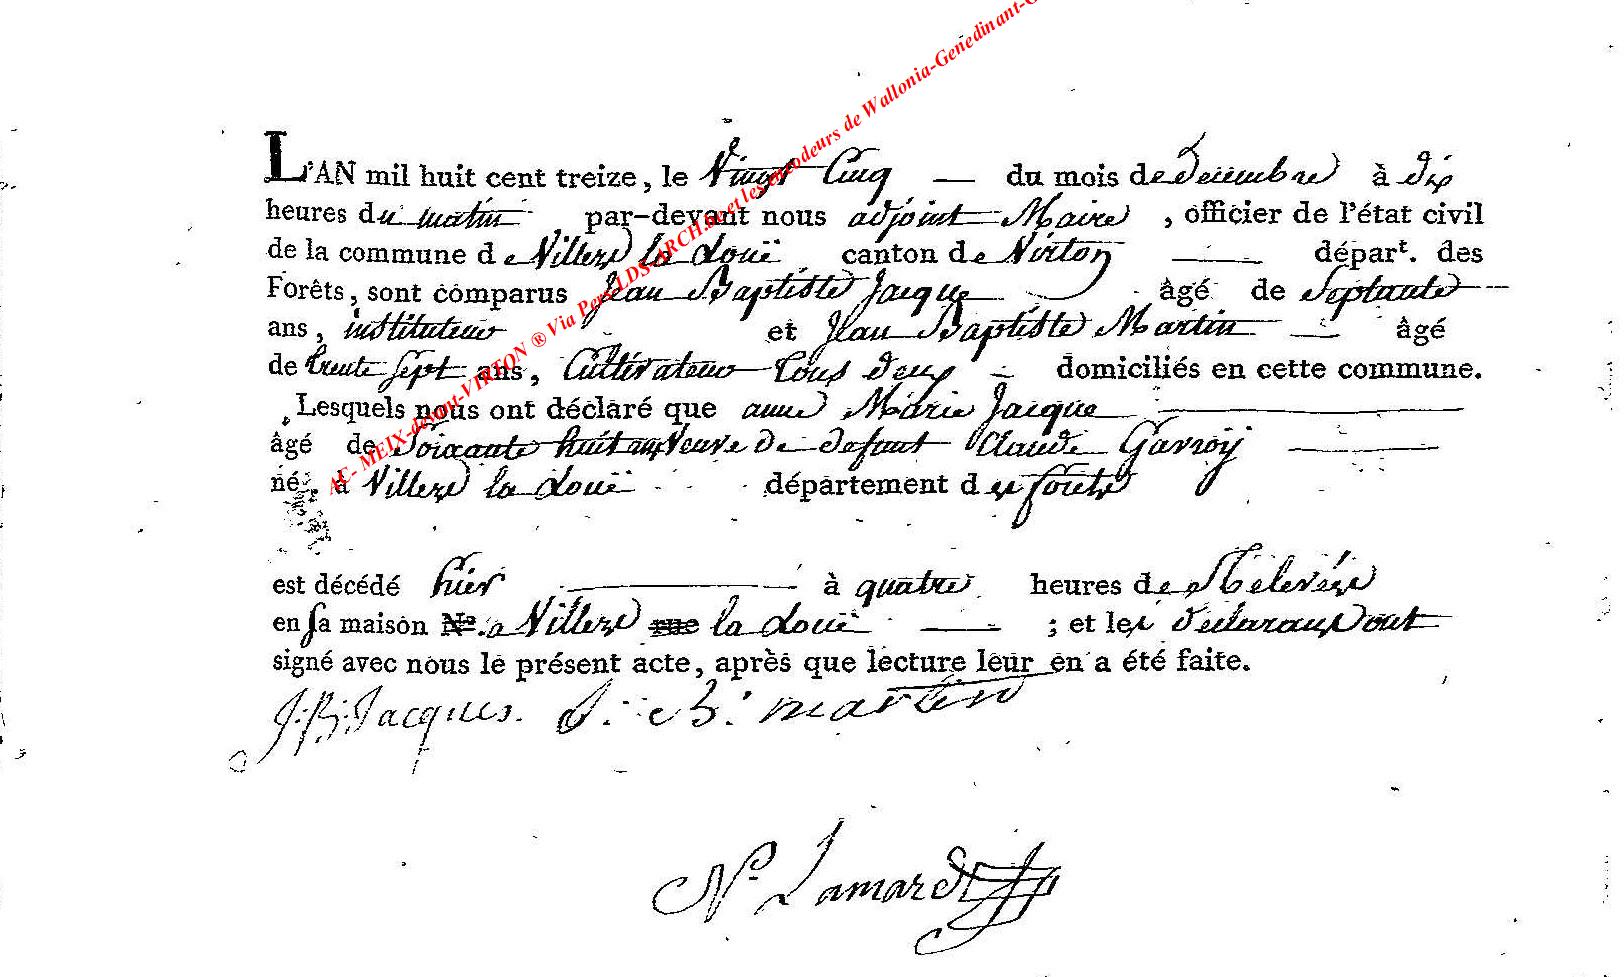 AC- MEIX-devant-VIRTON ® Via Pers LDS-ARCH.be et les encodeurs de Wallonia-Genedinant-G
L'AN mil huit cent treize, le Vingt Cinq — du mois de Decembre à dix
heures du matin par-devant nous adjoint Maire, officier de l'état civil
de la commune de Villers la Loüe canton de Virton — départ. des
Forêts, sont comparus Jean Baptiste Jacque âgé de Septante
ans, instituteur et Jean Baptiste Martin — âgé
de trente Sept ans, Cultivateur tous deux — domiciliés en cette commune.
Lesquels nous ont déclaré que anne Marie Jacque
âgé de Soixante huit ans Veuve de defunt Claude Gavroy
né à Villers la Loüe département des forêts
est décédé hier — à quatre heures de Relevée
en sa maison Nº. a Villers rue la Loüe — ; et les declarans ont
signé avec nous le présent acte, après que lecture leur en a été faite.
J: B: Jacques. J: B: martin
N. Lamard